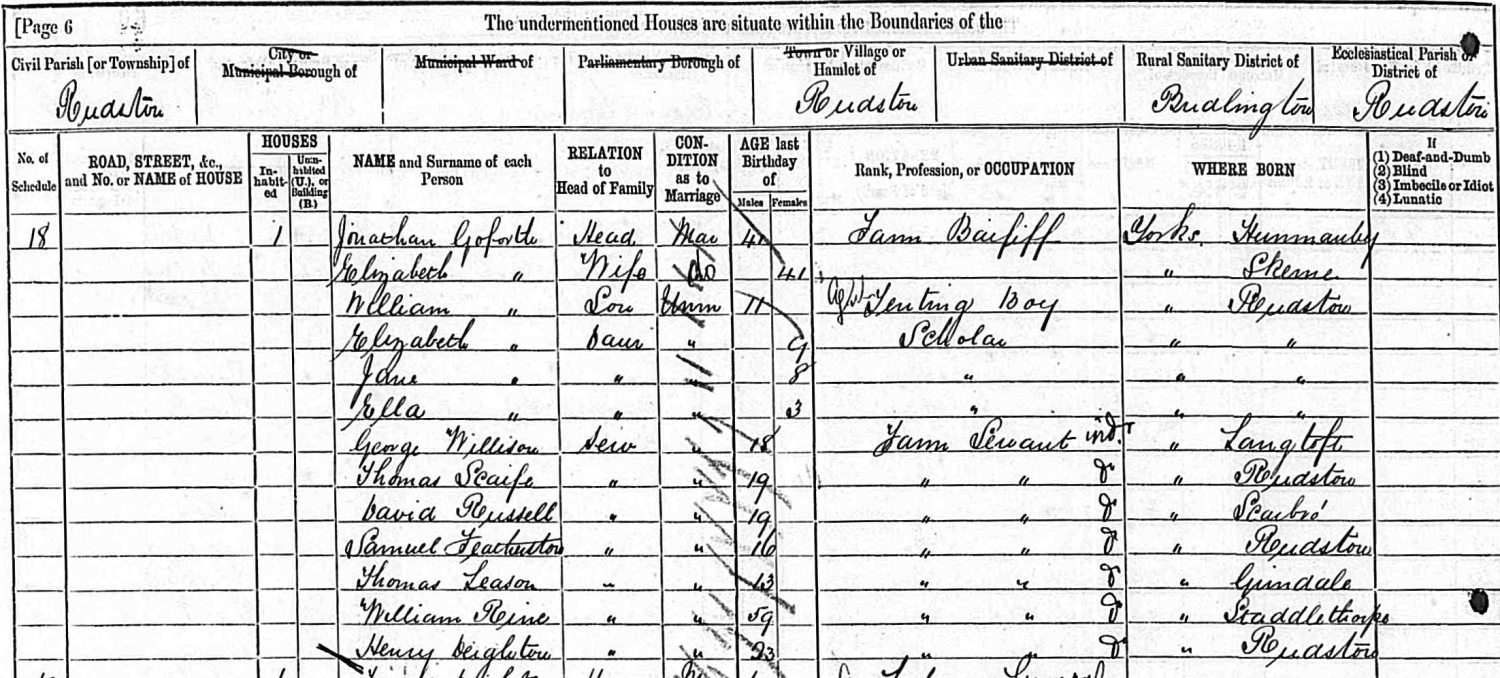 [Page 6
The undermentioned Houses are situate within the Boundaries of the
Civil Parish [or Township] of
City or Municipal Borough of
Municipal Ward of
Parliamentary Borough of
Town or Village or Hamlet of
Urban Sanitary District of
Rural Sanitary District of
Ecclesiastical Parish or District of
Rudston Rudston Bridlington Rudston
No. of Schedule
ROAD, STREET, &c., and No. or NAME of HOUSE
HOUSES
In-habit-ed
Unin-habited (U.), or Building (B.)
NAME and Surname of each Person
RELATION to Head of Family
CON-DITION as to Marriage
AGE last Birthday of
Males Females
Rank, Profession, or OCCUPATION
WHERE BORN
If
(1) Deaf-and-Dumb
(2) Blind
(3) Imbecile or Idiot
(4) Lunatic
18 1 Jonathan Goforth Head Mar 41 Farm Bailiff Yorks. Hunmanby
Elizabeth " Wife Do 41 " Skerne
William " Son Unm 11 Tenting Boy " Rudston
Elizabeth " Daur " 9 Scholar " "
Jane " " " 8 " " "
Ella " " " 3 " " "
George Willison Serv " 18 Farm Servant ind. " Langtoft
Thomas Scaife " " 19 " " " Rudston
David Russell " " 19 " " " Scarbro'
Samuel Featherston " " 16 " " " Rudston
Thomas Leason " " 13 " " " Grindale
William " " 59 " " " Staddlethorpe
Henry Deighton " " 23 " " " Rudston